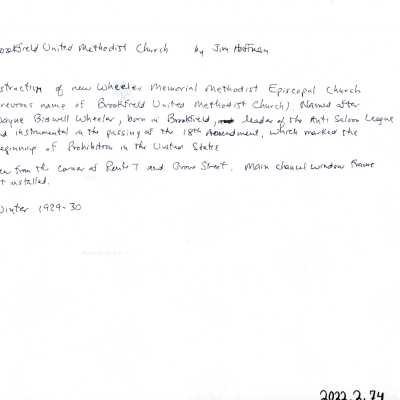 ookfield United Methodist Church by Jim Hoffman
struction of new Wheeler Memorial Methodist Episcopal Church
revious name of Brookfield United Methodist Church) Named after
ayne Bidwell Wheeler, born in Brookfield, leader of the Anti Saloon League
d instrumental in the passing of the 18th Amendment, which marked the
eginning of Prohibition in the United States
en from the corner of Route 7 and Grove Street. Main chancel window frame
t installed.
Winter 1929-30
2022.2.74